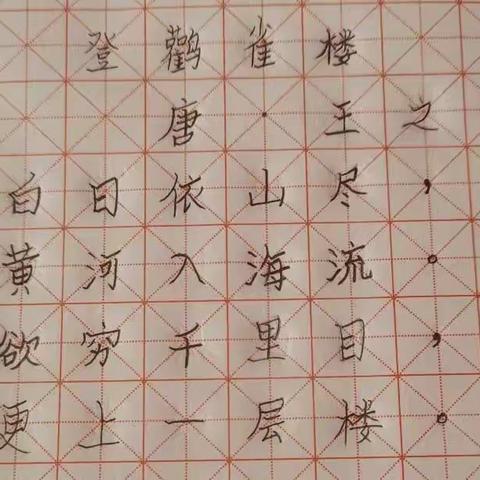 登鹳雀楼
唐·王之
白日依山尽，
黄河入海流。
欲穷千里目，
更上一层楼。